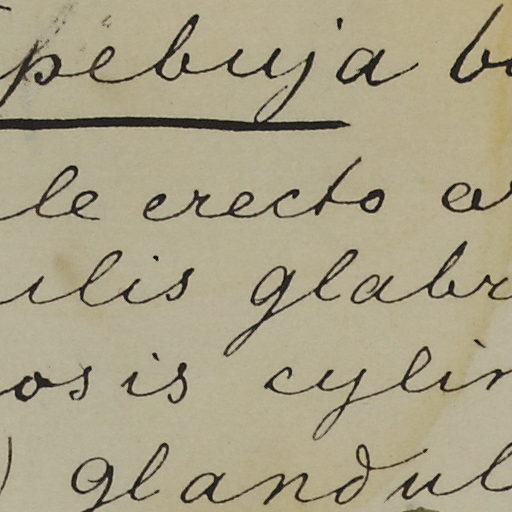 pebuja b
le erecto a
ulis glabr
osis cylin
) glandul